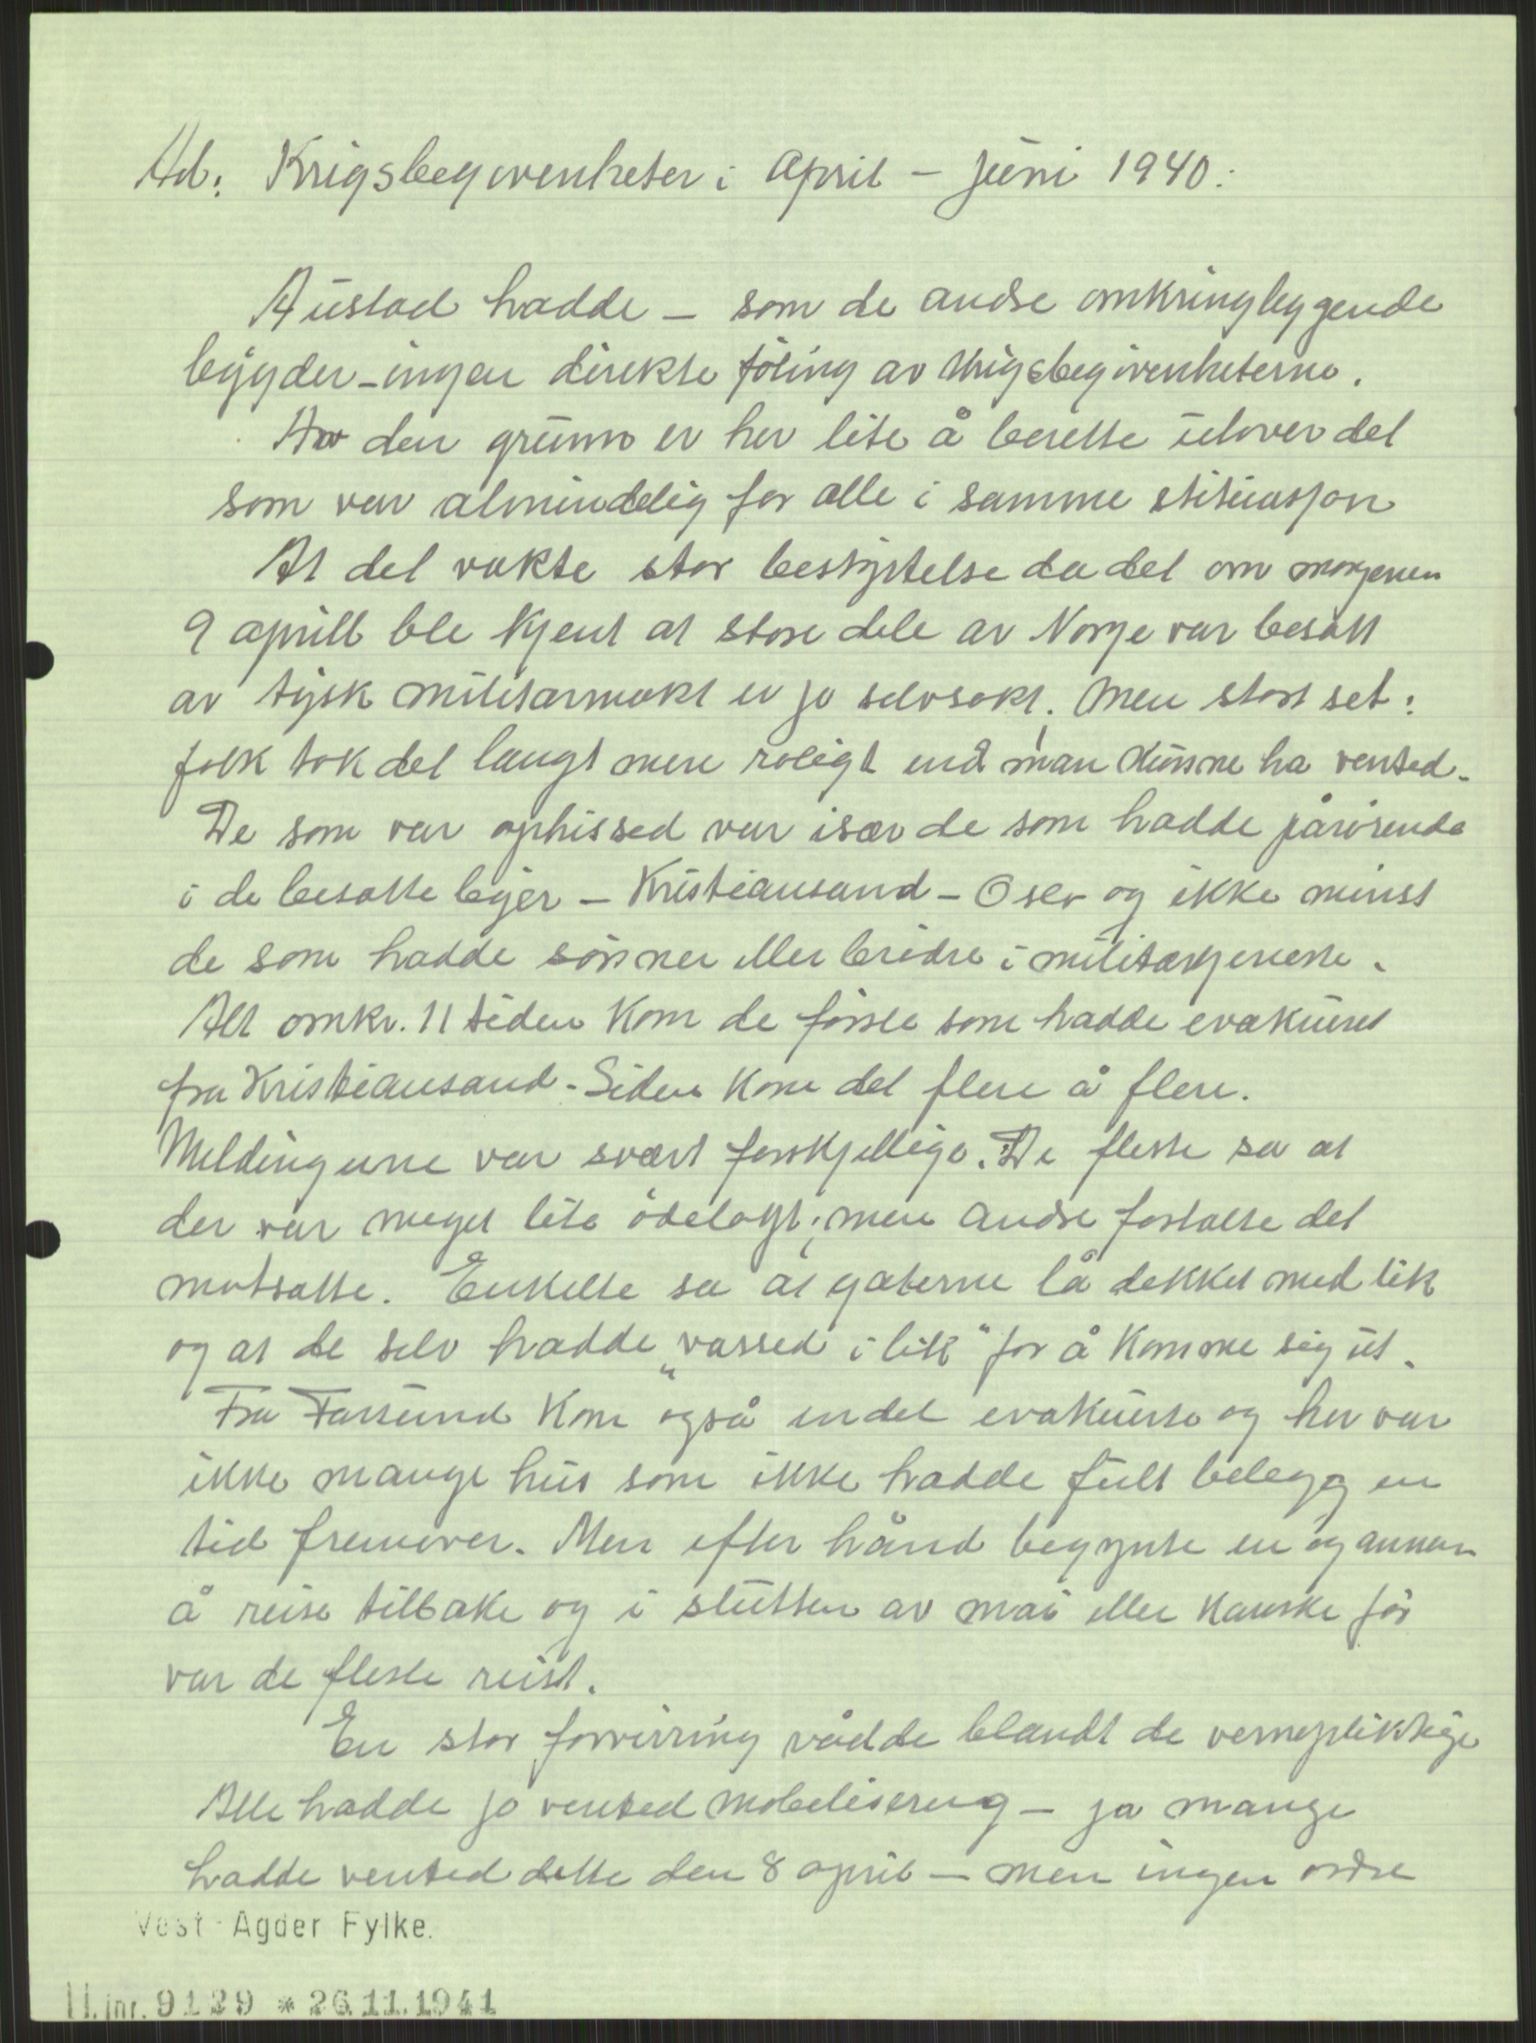 Ad: Krigsbegivenheter i April – juni 1940:
Austad hadde – som de andre omkringlyggende
bygder – ingen direkte føling av krigsbegivenheterne.
Av den grunn er her lite å berette utover det
som var almindelig for alle i samme stituasjon
At det vakte stor bestyrtelse da det om morgenen
9 aprill ble kjent at store dele av Norge var besatt
av tysk militærmakt er jo selvsakt. Men stort set:
folk tok det langt mere roligt end man kunne ha vented.
De som var ophissed var især de som hadde pårørende
i de besatte byer – Kristiansand – Oslo og ikke minst
de som hadde sønner eller brødre i militærtjeneste.
Alt omkr. 11 tiden kom de første som hadde evakuert
fra Kristiansand. Siden kom det flere å flere.
Meldingene var svært forskjellige. De fleste sa at
der var meget lite ødelagt; men andre fortalte det
motsatte. Enkelte sa at gaterne lå dekket med lik
og at de selv hadde "vassed i lik" for å komme sig ut.
Fra Farsund kom også endel evakuerte og her var
ikke mange hus som ikke hadde fult belegg en
tid fremover. Men efter hånd begynte en og annen
å reise tilbake og i slutten av mai eller kanske før
var de fleste reist.
En stor forvirring rådde blandt de vernepliktige
Alle hadde jo vented mobilisering – ja mange
hadde vented dette den 8 april – men ingen ordre
Vest-Agder Fylke.
II. jnr. 9129 * 26.11.1941